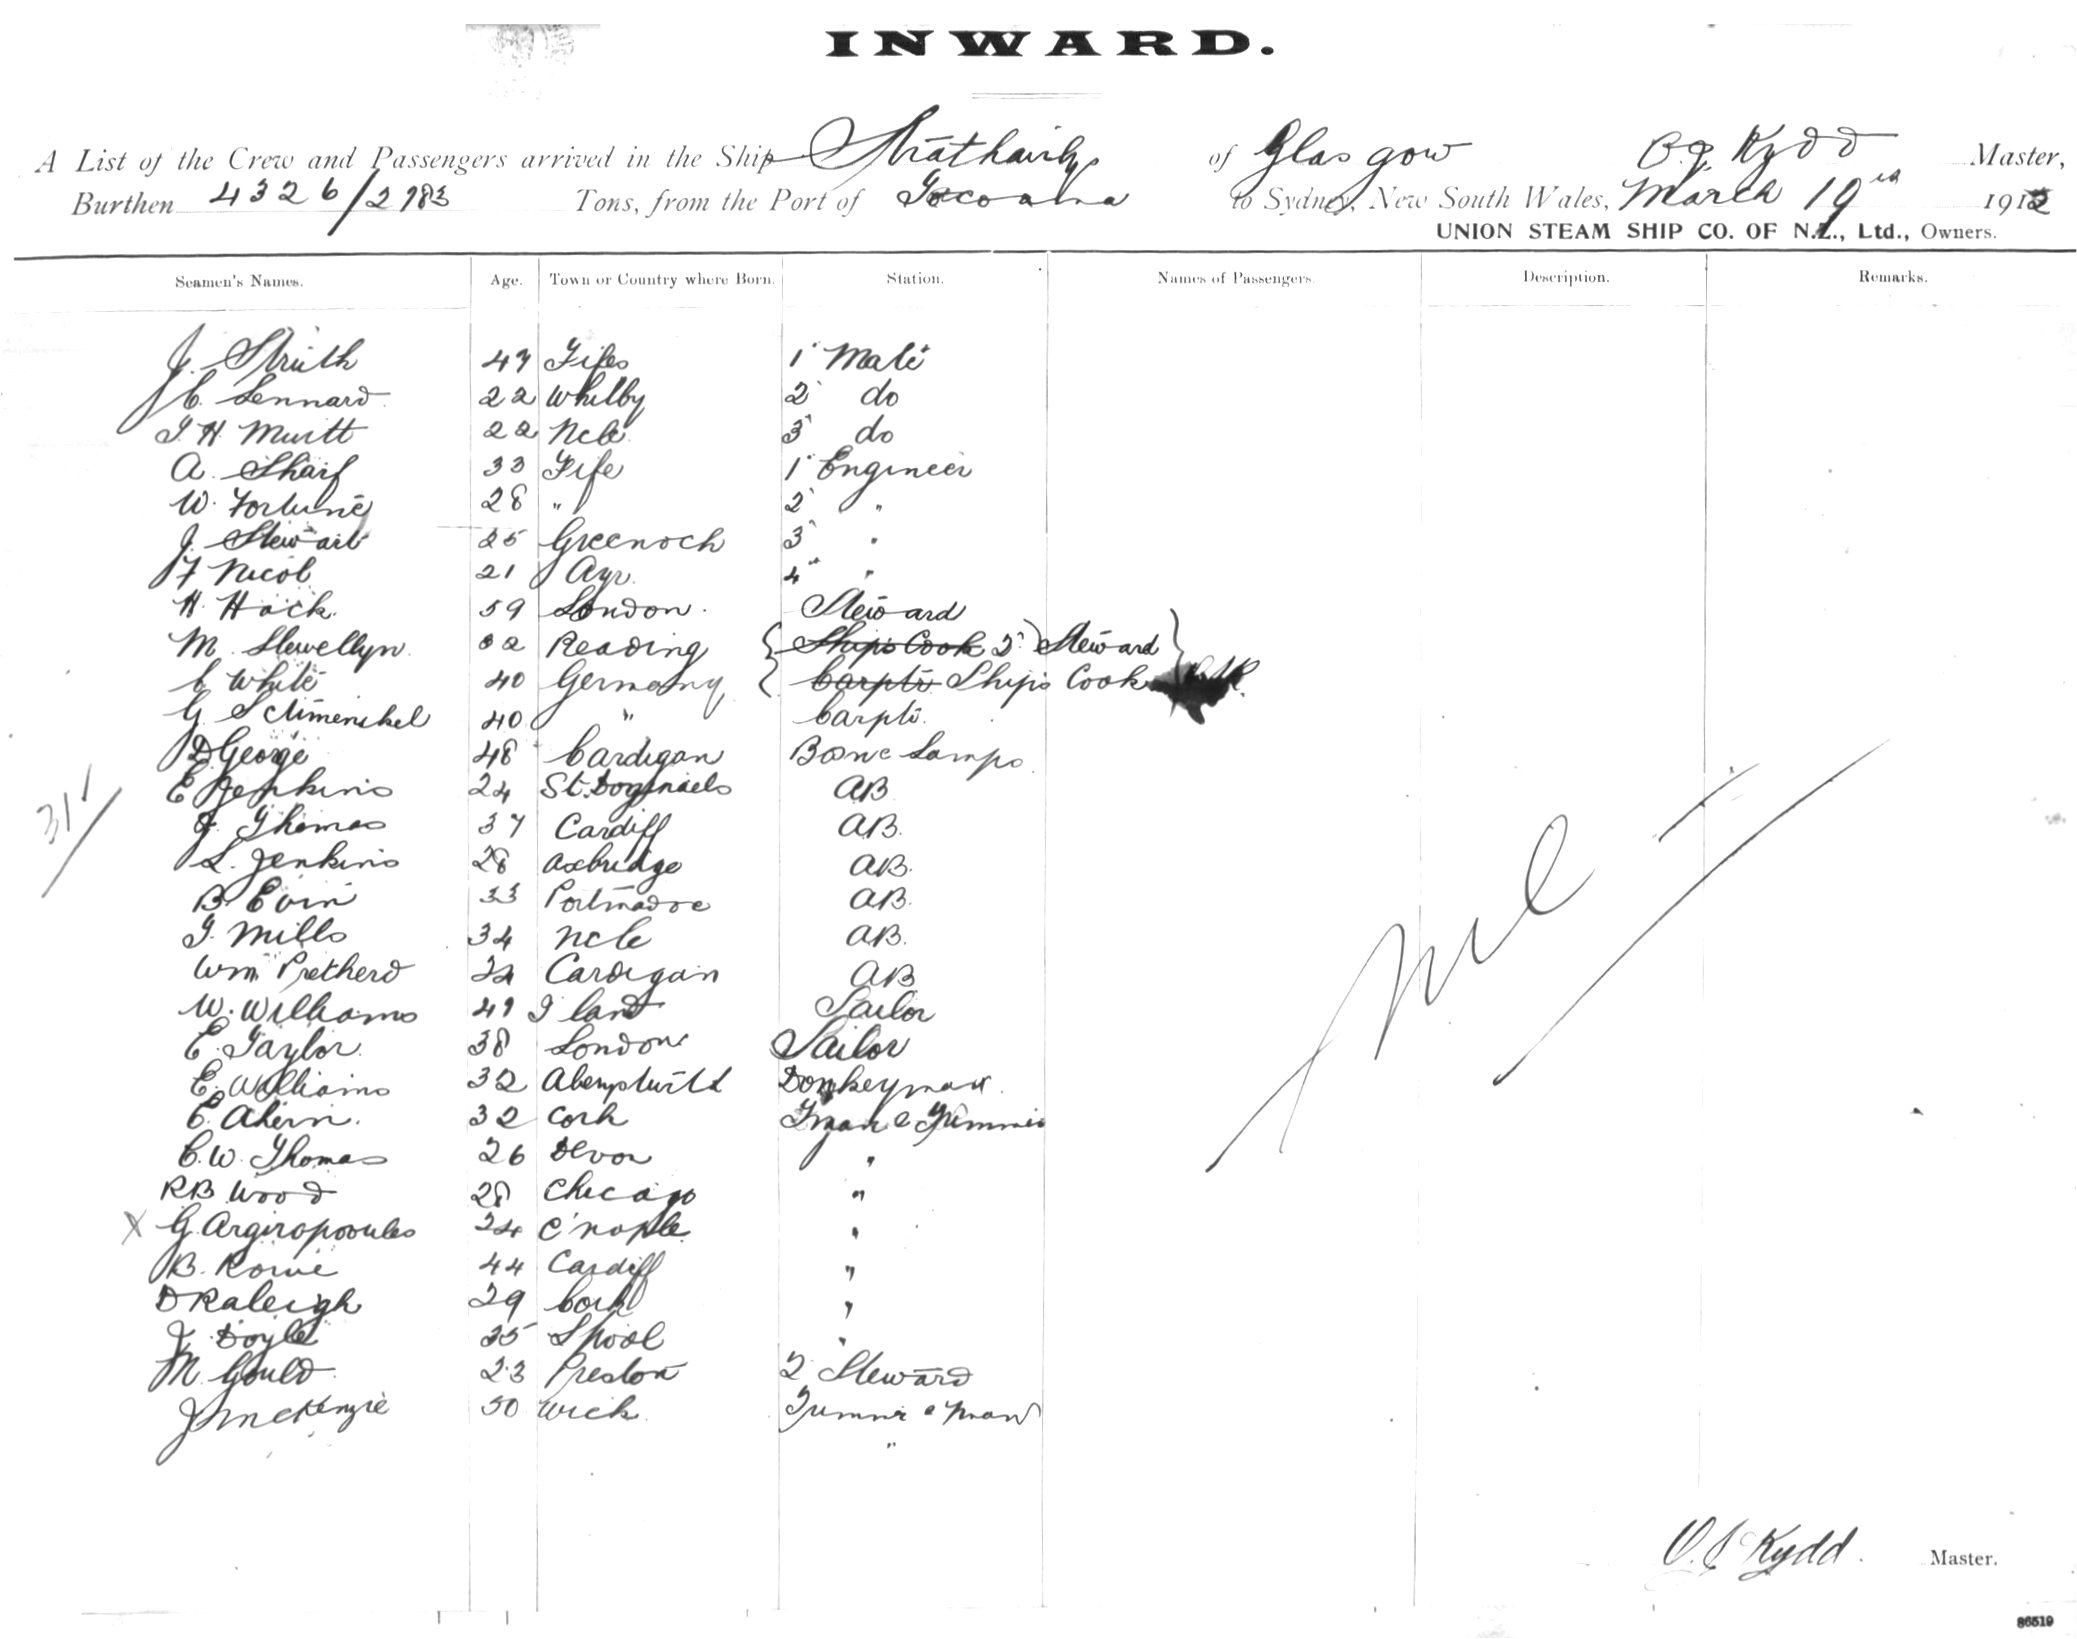 INWARD.
A List of the Crew and Passengers arrived in the Ship Strathairly of Glasgow Kydd Master,
Burthen 4326/2783 Tons, from the Port of to Sydney, New South Wales, March 19th 1912
UNION STEAM SHIP CO. OF N.Z., Ltd., Owners.
Seamen's Names. Age. Town or Country where Born. Station. Names of Passengers. Description. Remarks.
J. Struth 47 Fife 1st Mate
C. Lennard 22 Whitby 2 do
T. H. 22 Ncle 3 do
A. Sharp 33 Fife 1 Engineer
W. Fortune 28 " 2 "
J. Stewart 25 Greenock 3 "
F Nicol 21 Ayr. 4th "
H. Hack. 59 London. Steward
M. Llewellyn 22 Reading Ship's Cook 2 Steward
C White 40 Germany Carptr Ships Cook
G. 40 " Carptr.
D George 48 Cardigan Bosn & Lamps
E Jenkins 24 St. Dogmaels AB
J. Thomas 37 Cardiff AB.
L. Jenkins 28 Axbridge AB.
B. Evin 33 Portmadoc AB.
T. Mills 34 Ncle AB.
Wm Pretherd 24 Cardigan AB
W. Williams 41 I land Sailor
E. Taylor 38 London Sailor
E. Williams 32 Donkeyman
C. Ahern. 32 Cork Fman & Trimmer
C. W. Thomas 26 Devon "
RB Wood 28 Chicago "
X G. Argiropooules 24 C'nople "
B. Rowe 44 Cardiff "
D Raleigh 29 Cork "
J. Doyle 35 L'pool "
M. Gould 23 Preston 2 Steward
J McKenzie 50 Wick Trimmer & Fman
"
31
Nil
Kydd. Master.
86519